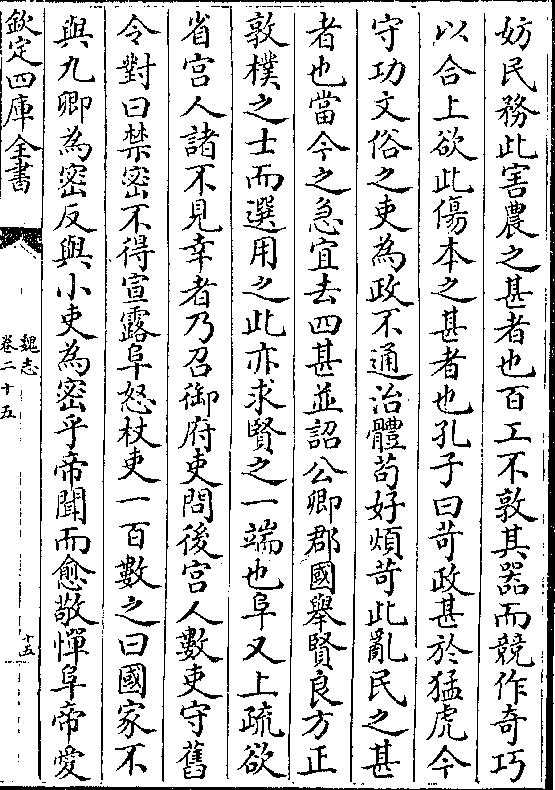 妨民務此害農之甚者也百工不敦其器而競作奇巧
以合上欲此傷本之甚者也孔子曰苛政甚於猛虎今
守功文俗之吏為政不通治體苟好煩苛此亂民之甚
者也當今之急宜去四甚並詔公卿郡國舉賢良方正
敦樸之士而選用之此亦求賢之一端也阜又上疏欲
省宫人諸不見幸者乃召御府吏問後宫人數吏守舊
令對曰禁密不得宣露阜怒杖吏一百數之曰國家不
與九卿為密反與小吏為密乎帝聞而愈敬憚阜帝愛
欽定四庫全書
魏志
卷二十五
十五